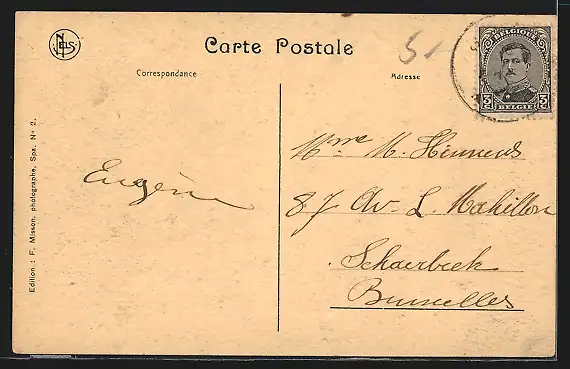 NELS
Carte Postale
51
Correspondance
Adresse
BELGIQUE
3 3
BELGIË
Edition : F. Misson, photographe, Spa. Nº 2.
Eugène
Mme M. Hennens
87 Av L. Mahillon
Schaerbeek
Bruxelles